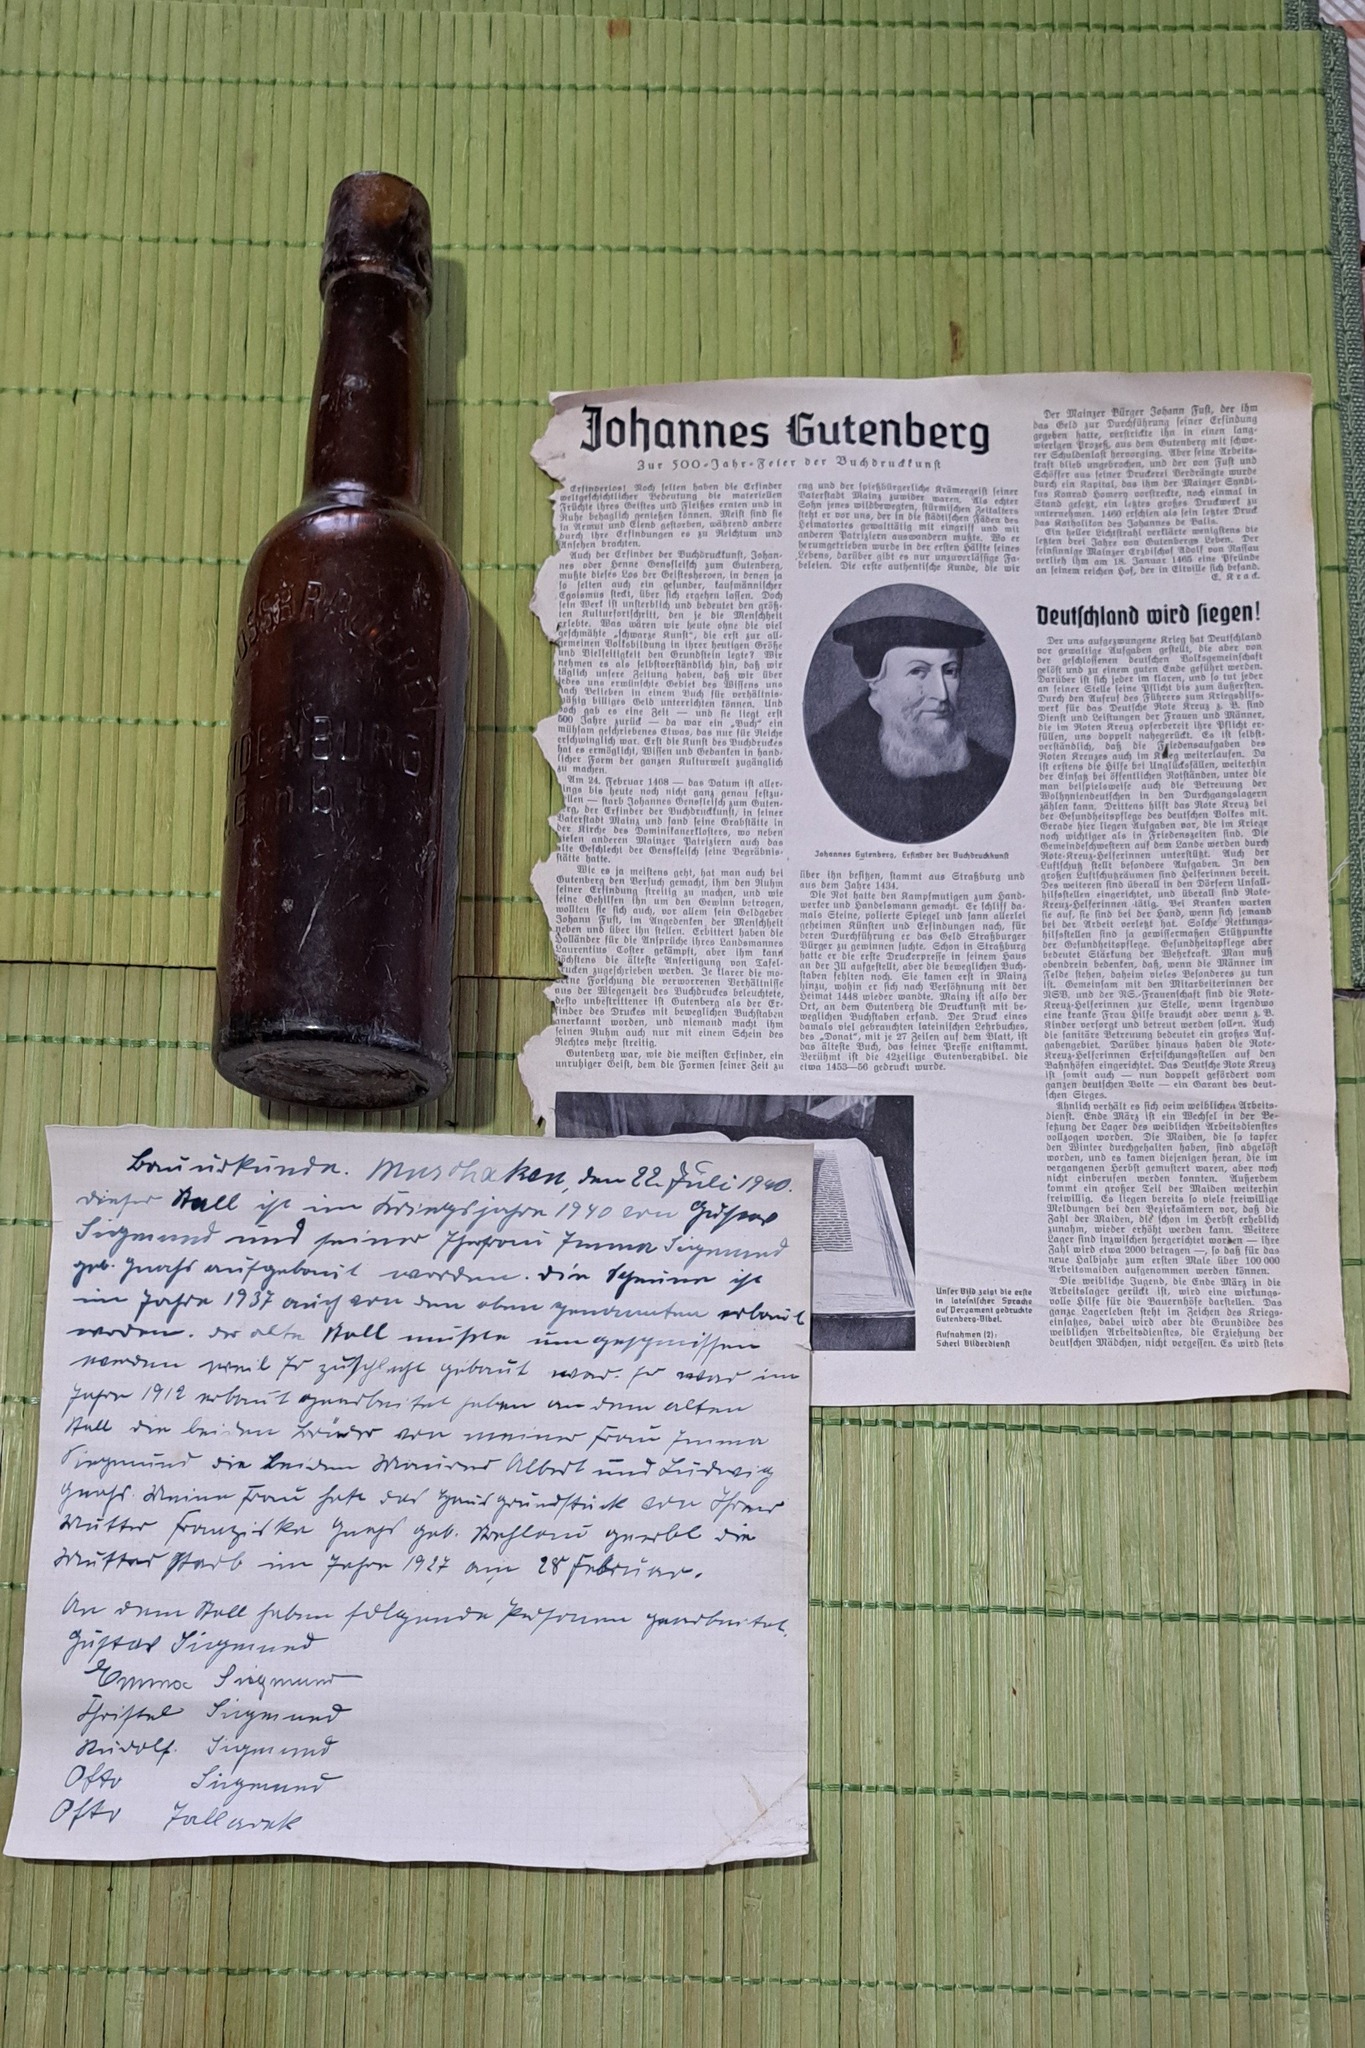 Johannes Gutenberg
Zur 500-Jahr-Feier der Buchdruckkunst
Erfinderlos! Noch selten haben die Erfinder
weltgeschichtlicher Bedeutung die materiellen
Früchte ihres Geistes und Fleißes ernten und in
Ruhe behaglich genießen können. Meist sind sie
in Armut und Elend gestorben, während andere
durch ihre Erfindungen es zu Reichtum und
Ansehen brachten.
Auch der Erfinder der Buchdruckkunst, Johan-
nes oder Henne Gensfleisch zum Gutenberg,
mußte dieses Los der Geistesheroen, in denen ja
so selten auch ein gesunder, kaufmännischer
Egoismus steckt, über sich ergehen lassen. Doch
sein Werk ist unsterblich und bedeutet den größ-
ten Kulturfortschritt, den je die Menschheit
erlebte. Was wären wir heute ohne die viel
geschmähte „schwarze Kunst“, die erst zur all-
gemeinen Volksbildung in ihrer heutigen Größe
und Vielseitigkeit den Grundstein legte? Wir
nehmen es als selbstverständlich hin, daß wir
täglich unsere Zeitung haben, daß wir über
jedes uns erwünschte Gebiet des Wissens uns
nach Belieben in einem Buch für verhältnis-
mäßig billiges Geld unterrichten können. Und
doch gab es eine Zeit — und sie liegt erst
500 Jahre zurück — da war ein „Buch“ ein
mühsam geschriebenes Etwas, das nur für Reiche
erschwinglich war. Erst die Kunst des Buchdruckes
hat es ermöglicht, Wissen und Gedanken in hand-
licher Form der ganzen Kulturwelt zugänglich
zu machen.
Am 24. Februar 1468 — das Datum ist aller-
dings bis heute noch nicht ganz genau festzu-
stellen — starb Johannes Gensfleisch zum Guten-
berg, der Erfinder der Buchdruckkunst, in seiner
Vaterstadt Mainz und fand seine Grabstätte in
der Kirche des Dominikanerklosters, wo neben
vielen anderen Mainzer Patriziern auch das
alte Geschlecht der Gensfleisch seine Begräbnis-
stätte hatte.
Wie es ja meistens geht, hat man auch bei
Gutenberg den Versuch gemacht, ihm den Ruhm
seiner Erfindung streitig zu machen, und wie
seine Gehilfen ihn um den Gewinn betrogen,
wollten sie sich auch, vor allem sein Geldgeber
Johann Fust, im Angedenken der Menschheit
neben und über ihn stellen. Erbittert haben die
Holländer für die Ansprüche ihres Landsmannes
Laurentius Coster gekämpft, aber ihm kann
höchstens die älteste Anfertigung von Tafel-
drucken zugeschrieben werden. Je klarer die mo-
derne Forschung die verworrenen Verhältnisse
aus der Wiegenzeit des Buchdruckes beleuchtete,
desto unbestrittener ist Gutenberg als der Er-
finder des Druckes mit beweglichen Buchstaben
anerkannt worden, und niemand macht ihm
seinen Ruhm auch nur mit einem Schein des
Rechtes mehr streitig.
Gutenberg war, wie die meisten Erfinder, ein
unruhiger Geist, dem die Formen seiner Zeit zu
eng und der spießbürgerliche Krämergeist seiner
Vaterstadt Mainz zuwider waren. Als echter
Sohn jenes wildbewegten, stürmischen Zeitalters
steht er vor uns, der in die städtischen Fäden des
Heimatortes gewalttätig mit eingriff und mit
anderen Patriziern auswandern mußte. Wo er
herumgetrieben wurde in der ersten Hälfte seines
Lebens, darüber gibt es nur unzuverlässige Fa-
beleien. Die erste authentische Kunde, die wir
Johannes Gutenberg, Erfinder der Buchdruckkunst
über ihn besitzen, stammt aus Straßburg und
aus dem Jahre 1434.
Die Not hatte den Kampfmutigen zum Hand-
werker und Handelsmann gemacht. Er schliff da-
mals Steine, polierte Spiegel und sann allerlei
geheimen Künsten und Erfindungen nach, für
deren Durchführung er das Geld Straßburger
Bürger zu gewinnen suchte. Schon in Straßburg
hatte er die erste Druckerpresse in seinem Haus
an der Ill aufgestellt, aber die beweglichen Buch-
staben fehlten noch. Sie kamen erst in Mainz
hinzu, wohin er sich nach Versöhnung mit der
Heimat 1448 wieder wandte. Mainz ist also der
Ort, an dem Gutenberg die Druckkunst mit be-
weglichen Buchstaben erfand. Der Druck eines
damals viel gebrauchten lateinischen Lehrbuches,
des „Donat“, mit je 27 Zeilen auf dem Blatt, ist
das älteste Buch, das seiner Presse entstammt.
Berühmt ist die 42zeilige Gutenbergbibel, die
etwa 1453—56 gedruckt wurde.
Der Mainzer Bürger Johann Fust, der ihm
das Geld zur Durchführung seiner Erfindung
gegeben hatte, verstrickte ihn in einen lang-
wierigen Prozeß, aus dem Gutenberg mit schwe-
rer Schuldenlast hervorging. Aber seine Arbeits-
kraft blieb ungebrochen, und der von Fust und
Schöffer aus seiner Druckerei Verdrängte wurde
durch ein Kapital, das ihm der Mainzer Syndi-
kus Konrad Homery vorstreckte, noch einmal in
Stand gesetzt, ein letztes großes Druckwerk zu
unternehmen. 1460 erschien als sein letzter Druck
das Katholikon des Johannes de Balis.
Ein heller Lichtstrahl verklärte wenigstens die
letzten drei Jahre von Gutenbergs Leben. Der
feinsinnige Mainzer Erzbischof Adolf von Nassau
verlieh ihm am 18. Januar 1465 eine Pfründe
an seinem reichen Hof, der in Eltville sich befand.
E. Krack.
Deutschland wird siegen!
Der uns aufgezwungene Krieg hat Deutschland
vor gewaltige Aufgaben gestellt, die aber von
der geschlossenen deutschen Volksgemeinschaft
gelöst und zu einem guten Ende geführt werden.
Darüber ist sich jeder im klaren, und so tut jeder
an seiner Stelle seine Pflicht bis zum äußersten.
Durch den Aufruf des Führers zum Kriegshilfs-
werk für das Deutsche Rote Kreuz z. B. sind
Dienst und Leistungen der Frauen und Männer,
die im Roten Kreuz opferbereit ihre Pflicht er-
füllen, uns doppelt nahegerückt. Es ist selbst-
verständlich, daß die Friedensaufgaben des
Roten Kreuzes auch im Krieg weiterlaufen. Da
ist erstens die Hilfe bei Unglücksfällen, weiterhin
der Einsatz bei öffentlichen Notständen, unter die
man beispielsweise auch die Betreuung der
Wolhyniendeutschen in den Durchgangslagern
zählen kann. Drittens hilft das Rote Kreuz bei
der Gesundheitspflege des deutschen Volkes mit.
Gerade hier liegen Aufgaben vor, die im Kriege
noch wichtiger als in Friedenszeiten sind. Die
Gemeindeschwestern auf dem Lande werden durch
Rote-Kreuz-Helferinnen unterstützt. Auch der
Luftschutz stellt besondere Aufgaben. In den
großen Luftschutzräumen sind Helferinnen bereit.
Des weiteren sind überall in den Dörfern Unfall-
hilfsstellen eingerichtet, und überall sind Rote-
Kreuz-Helferinnen tätig. Bei Kranken warten
sie auf, sie sind bei der Hand, wenn sich jemand
bei der Arbeit verletzt hat. Solche Rettungs-
hilfsstellen sind ja gewissermaßen Stützpunkte
der Gesundheitspflege. Gesundheitspflege aber
bedeutet Stärkung der Wehrkraft. Man muß
obendrein bedenken, daß, wenn die Männer im
Felde stehen, daheim vieles Besonderes zu tun
ist. Gemeinsam mit den Mitarbeiterinnen der
NSV. und der NS.-Frauenschaft sind die Rote-
Kreuz-Helferinnen zur Stelle, wenn irgendwo
eine kranke Frau Hilfe braucht oder wenn z. B.
Kinder versorgt und betreut werden sollen. Auch
die sanitäre Betreuung bedeutet ein großes Auf-
gabengebiet. Darüber hinaus haben die Rote-
Kreuz-Helferinnen Erfrischungsstellen auf den
Bahnhöfen eingerichtet. Das Deutsche Rote Kreuz
ist somit auch — nun doppelt gefördert vom
ganzen deutschen Volke — ein Garant des deut-
schen Sieges.
Ähnlich verhält es sich beim weiblichen Arbeits-
dienst. Ende März ist ein Wechsel in der Be-
setzung der Lager des weiblichen Arbeitsdienstes
vollzogen worden. Die Maiden, die so tapfer
den Winter durchgehalten haben, sind abgelöst
worden, und es kamen diejenigen heran, die im
vergangenen Herbst gemustert waren, aber noch
nicht einberufen werden konnten. Außerdem
kommt ein großer Teil der Maiden weiterhin
freiwillig. Es liegen bereits so viele freiwillige
Meldungen bei den Bezirksämtern vor, daß die
Zahl der Maiden, die schon im Herbst erheblich
zunahm, wieder erhöht werden kann. Weitere
Lager sind inzwischen hergerichtet worden — ihre
Zahl wird etwa 2000 betragen —, so daß für das
neue Halbjahr zum ersten Male über 100 000
Arbeitsmaiden aufgenommen werden können.
Die weibliche Jugend, die Ende März in die
Arbeitslager gerückt ist, wird eine wirkungs-
volle Hilfe für die Bauernhöfe darstellen. Das
ganze Lagerleben steht im Zeichen des Kriegs-
einsatzes, dabei wird aber die Grundidee des
weiblichen Arbeitsdienstes, die Erziehung der
deutschen Mädchen, nicht vergessen. Es wird stets
Unser Bild zeigt die erste
in lateinischer Sprache
auf Pergament gedruckte
Gutenberg-Bibel.
Aufnahmen (2):
Scherl Bilderdienst
Bauurkunde. Muschaken, den 22. Juli 1940.
dieser Stall ist im Kriegsjahre 1940 von Gustav
Siegmund und seiner Ehefrau Emma Siegmund
geb. Gnass aufgebaut worden. die Scheune ist
im Jahre 1937 auch von den oben genannten erbaut
worden. der alte Stall mußte umgeschmissen
werden weil Er zuschlecht gebaut war. Er war im
Jahre 1912 erbaut gearbeitet haben an dem alten
Stall die beiden Brüder von meiner Frau Emma
Siegmund die beiden Maurer Albert und Ludwig
Gnass. Meine Frau hate das Hausgrundstück von Ihrer
Mutter Franziska Gnass geb. geerbt die
Mutter Starb im Jahre 1927 am 28 Februar.
An dem Stall haben folgende Personen gearbeitet.
Gustav Siegmund
Emma Siegmund
Christel Siegmund
Rudolf. Siegmund
Otto Siegmund
Otto Jallarek